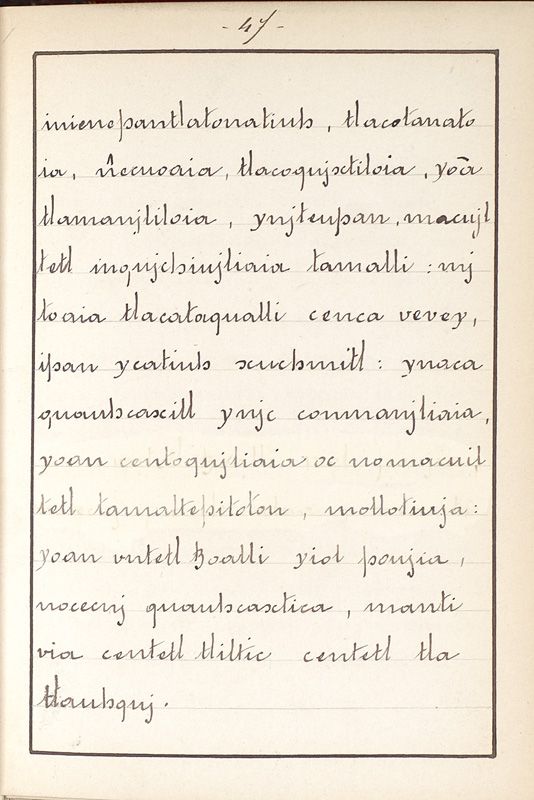 - 47 -
inienepantlatonatiuh, tlacotanato
ia, ñecuoaia, tlacoqujxtiloia, yoā
tlamanjliloia, ynjteupan, macujl
tetl inqujchiujliaia tamalli: mj
toaia tlacataqualli cenca vevey,
ipan ycatiuh xuchmitl: ynaca
quauhcaxitl ynjc conmanjliaia,
yoan centoqujliaia oc nomacuil
tetl tamaltepitoton, mollotiuja:
yoan vntetl Koalli yiol poujia,
nocecnj quauhcaxtica, manti
via centetl tliltic centetl tla
tlauhquj.